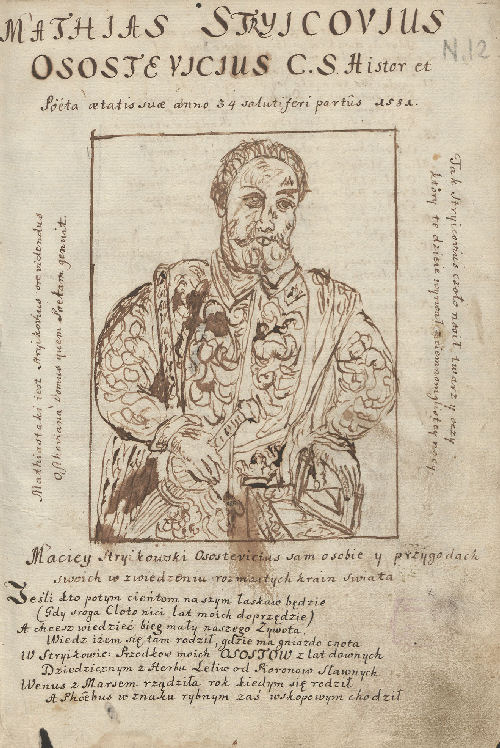 MATHIAS STRYICOVIUS
OSOSTEVICIUS C.S. Histor et
Pöeta ætatis suæ anno 34 salutiferi partûs 1581.
N.12
Mathias taki iest Stryikovius
Osthoviana Domus quem Poetam genuit.
Tak Stryicovius czoło nosił twarz y oczy
który te dzieie
Maciey Stryikowski Osostevicius sam o sobie y przygodach
swoich w zwiedzeniu rozmaitych krain świata
Jeśli kto potym cieńtom naszym łaskaw będzie
(Gdy sroga Cloto nici lat moich doprzędzie)
A chcesz wiedzieć bieg mały naszego Żywota
Wiedz iżem się tam rodził, gdzie ma gniazdo cnota
W Stryikowie: Przodkow moich OSOSTOW z lat dawnych
Dziedzicznym z Herbu Leliw od Koronow Sławnych
Wenus z Marsem rządziła rok kiedym się rodził
A Phœbus w znaku rybnym zaś w skopowym chodził